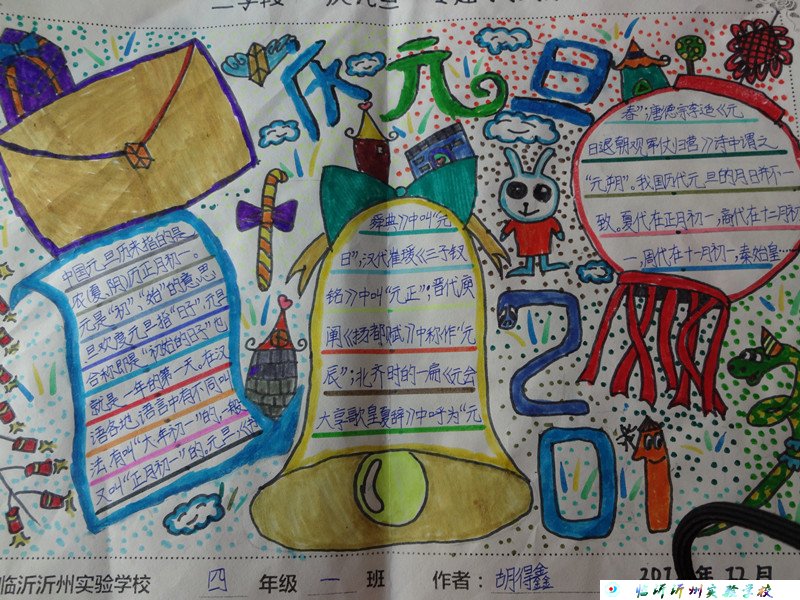 庆元旦
中国元旦历来指的是
农(夏、阴)历正月初一。
元是"初"、"始"的意思,
旦
元旦
合称即是"初始的日子"也
就是一年的第一天。在汉
语各地,语言中有不同叫
法,有叫"大年初一"的,一般
又叫"正月初一"的。元旦,《书
舜典》中叫"元
日",汉代崔瑗《三子钗
铭》中叫"元正";晋代庾
阐《扬都赋》中称作"元
辰";北齐时的一篇《元会
大享歌皇夏辞》中呼为"元
春";唐德宗李适《元
日退朝观军仗归营》诗中谓之
"元朔"。我国历代元旦的月日并不一
致。夏代在正月初一,商代在十二月初
一,周代在十一月初一,秦始皇……
201
临沂沂州实验学校 四 年级 一 班 作者: 胡得鑫 年 12 月
临沂沂州实验学校